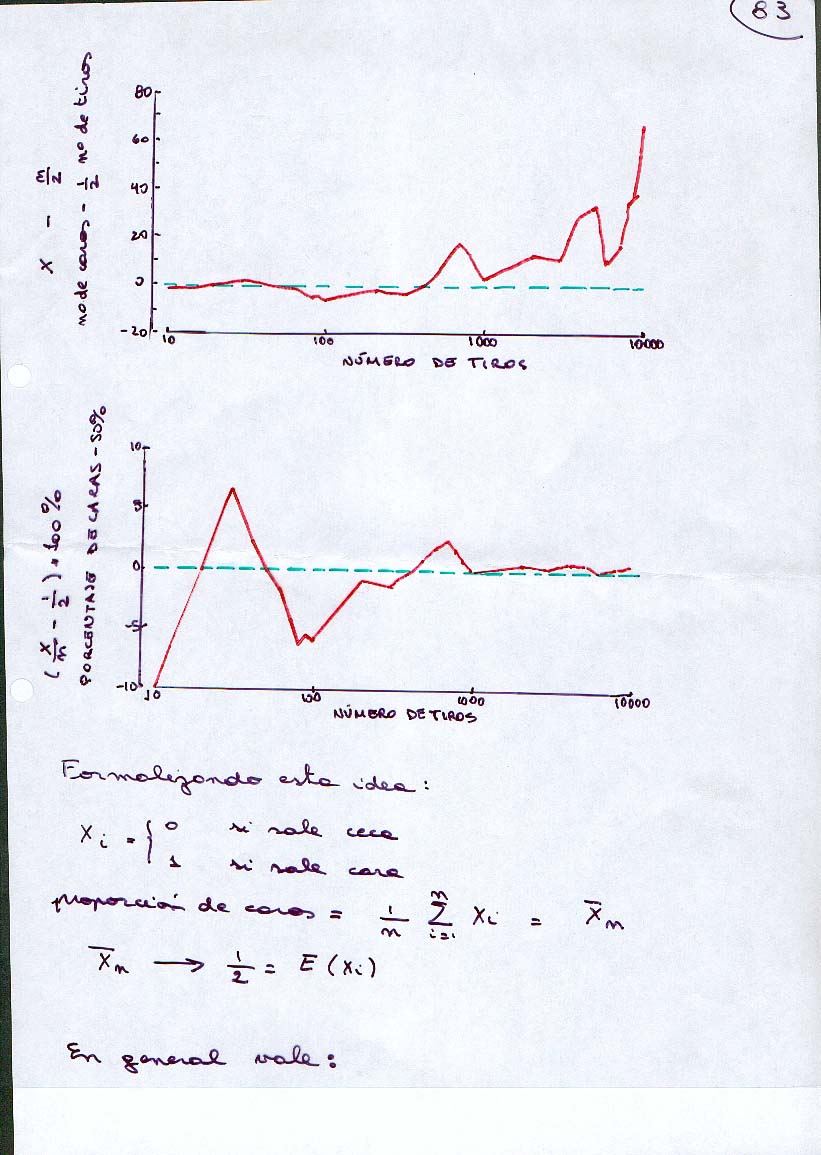 83
X - n/2
no de caras - 1/2 nº de tiros
80
60
40
20
0
-20
10 100 1000 10000
NÚMERO DE TIROS
(X/n - 1/2) * 100%
PORCENTAJE DE CARAS - 50%
10
5
0
-5
-10
10 100 1000 10000
NÚMERO DE TIROS
Formalizando esta idea:
Xi = { 0 si sale ceca
1 si sale cara
proporción de caras = 1/n Σ i=1 n Xi = X̄n
X̄n → 1/2 = E(Xi)
En general vale: